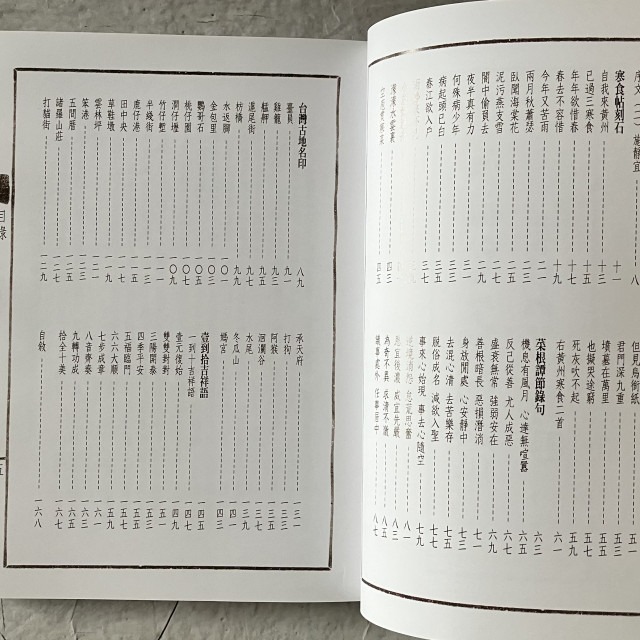 序文(二) 施靜宜
寒食帖刻石 十一
自我來黃州 十三
已過三寒食 十五
年年欲惜春 十七
春去不容惜 十九
今年又苦雨 二一
兩月秋蕭瑟 二三
臥聞海棠花 二五
泥污燕支雪 二七
闇中偷負去 二九
夜半真有力 三一
何殊病少年 三三
病起頭已白 三五
春江欲入戶 三七
濛濛水雲裏 四三
空庖煮寒菜 四五
但見烏銜紙 五一
君門深九重 五三
墳墓在萬里 五五
也擬哭途窮 五七
死灰吹不起 五九
右黃州寒食二首
菜根譚節錄句 六三
機息有風月 心達無喧囂 六五
反己從善 尤人成惡 六七
盛衰無常 強弱安在 六九
善根暗長 惡損潛消 七一
身放閒處 心安靜中 七三
去混心清 去苦樂存 七五
脫俗成名 減欲入聖 七七
事來心始現 事去心隨空 七九
逆境消怨 怠荒思奮 八一
恩宜後濃 威宜先嚴 八三
為奇不異 求清不激 八五
議事處外 任事居中 八七
台灣古地名印 八九
臺員 九一
雞籠 九三
艋舺 九五
滬尾街 九七
枋橋 九九
水返腳 一〇一
金包里 一〇三
鸚哥石 一〇五
桃仔園 一〇七
澗仔壢 一〇九
竹仔塹 一一一
半綫街 一一三
鹿仔港 一一五
田中央 一一七
草鞋墩 一一九
雲林坪 一二一
笨港 一二三
五間厝 一二五
諸羅山莊 一二七
打貓街 一二九
承天府 一三一
打狗 一三三
阿猴 一三五
洄瀾谷 一三七
水尾 一三九
冬瓜山 一四一
媽宮 一四三
壹到拾吉祥語 一四五
一到十吉祥語 一四七
壹元復始 一四九
雙雙對對 一五一
三陽開泰 一五三
四季平安 一五五
五福臨門 一五七
六六大順 一五九
七步成章 一六一
八音齊奏 一六三
九轉功成 一六五
拾全十美 一六七
自敘 一六八
目錄
五